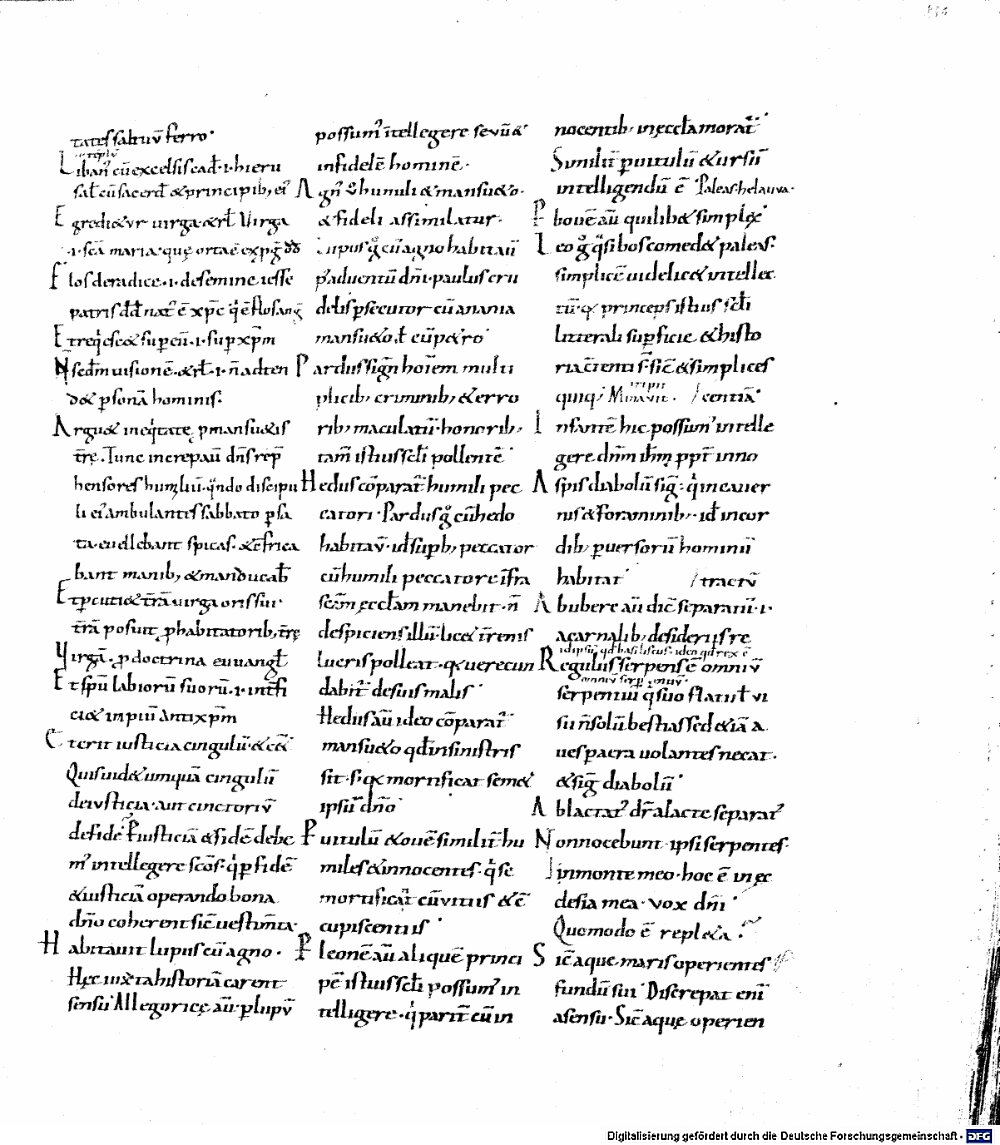 tates saltuū ferro·
Liban᷒ cū excelsis cad&̄·i·hieru
sał cū sacerd̄ & principib; ei᷒
Egredi&ur uirga·&rł Uirga
·i·sc̄a maria·quę orta ē ex p̄g̅ dd̄
Flos de radice·i·de semine iesse
patris dd̄ nat᷒ ē xp̄c q̇ ē flos
Et reqͥesc& sup eū·i·sup xp̄m
N̄ sedm̄ uisionē·&rł·i·n̄ adten
d& psonā hominis·
Argu& in eqͥtate, p mansu&is
tr̄ę·Tunc increpauı̄ dn̄s rep̄
hensores humiliū·qn̄do discipu
li ei᷒ ambulantes sabbato p sa
ta·euellebant spicas·& c̄frica
bant manib; & manducab̄
Et pcuti& tr̄ā uirga oris sui·
tr̄ā posuit p habitatorib; tr̄ę
Virgā·p doctrina euuangł
Et spū labiorū suorū·i·intfi
ci& inpiū Antixp̄m
Et erit iusticia cingulū·&c̄&
Quis uid& umquā cingulū
de iusticia·aut cinctoriū
de fide P iusticiā & fidē debe
m᷒ intellegere sc̄os·qͥ p fidē
& iusticiā operando bona
dn̄o coherent sic̄ uestim̄ta·
Habitauit lupus cū agno·
Hęc iuxta historiā carent
sensu Allegoricę aū·p lupū
possum᷒ ītellegere seuū &
infidelē hominē·
Agn᷒ v̊ humili & mansu&o·
& fideli assimilatur·
Lupus g̊ cū agno habitauı̄
p aduentū dn̄i·paulus cru
delis psecutor cū anania
mansu&o,ł cū p&ro
Pardus sign̄ hoı̄em multi
plicib; criminib; & erro
rib; maculatū·honorib;
tam̄ istius scłi pollentē
Hedus cōparat᷒ humili pec
catori·Pardus g̊ cū hedo
habitaū·id supb; peccator
cū humili peccatore īfra
sc̄am ęcclam manebit·n̄
despiciens illū·lic& tr̄enis
lucris polleat·qͥ uerecun
dabit᷒ de suis malis
Hedus aū ideo cōparat᷒
mansu&o qd̄ in sinistris
sit·s·qͥ mortificat sem&
ipsū dn̄o
P uitulū & ouē similit̄ hu
miles & innocentes·qͥ se
mortificāt cū uitiis & c̄
cupiscentiis
P leonē aū aliquē princi
pē istius scłi possum᷒ in
telligere·qͥ parit̄ cū in
nocentib; in ęccła morat᷒
Similit̄ p uitulū & ursū
intelligendū ē Paleas·helauua·
P bouē aū quilib& simplex
Leo g̊ qͥsi bos comed& paleas·
simplicē uidelic& intellec
tū·qͥ princeps istius scłi
litterali supficie & histo
ria c̄tenti s̄·sic̄ & simplices
quiqͥ
Infantē hic possum᷒ intelle
gere dn̄m ihm̄ ppt̄ inno
/centiā·
Aspis diabolū sig̅·qͥ in cauer
nis & foraminib;·id incor
dib; puersorū hominū
habitat /tractū
Ab ubere aū dic̄ separatū·i·
a carnalib; desideriis re
id ipsū qd̄ basiliscus·ideo qd̄ rex ē
Regulus serpens ē omniū
omniū serp̄entiū
serpentiū qͥ suo flatu ł ui
su n̄ solū bestias sed & iā a
ues p aera uolantes necat·
& sig̅ diabolū·
Ablactat᷒ dr̄ a lacte separat᷒
Non nocebunt ipsi serpentes·
In monte meo·hoc ē in ęc
clesia mea·uox dn̄i·
Quomodo ē repleta?
Sic̄ aquę maris operientes
fundū sui Discrepat enı̄
a sensu·Sic̄ aquę operien
Digitalisierung gefördert durch die Deutsche Forschungsgemeinschaft - DFG